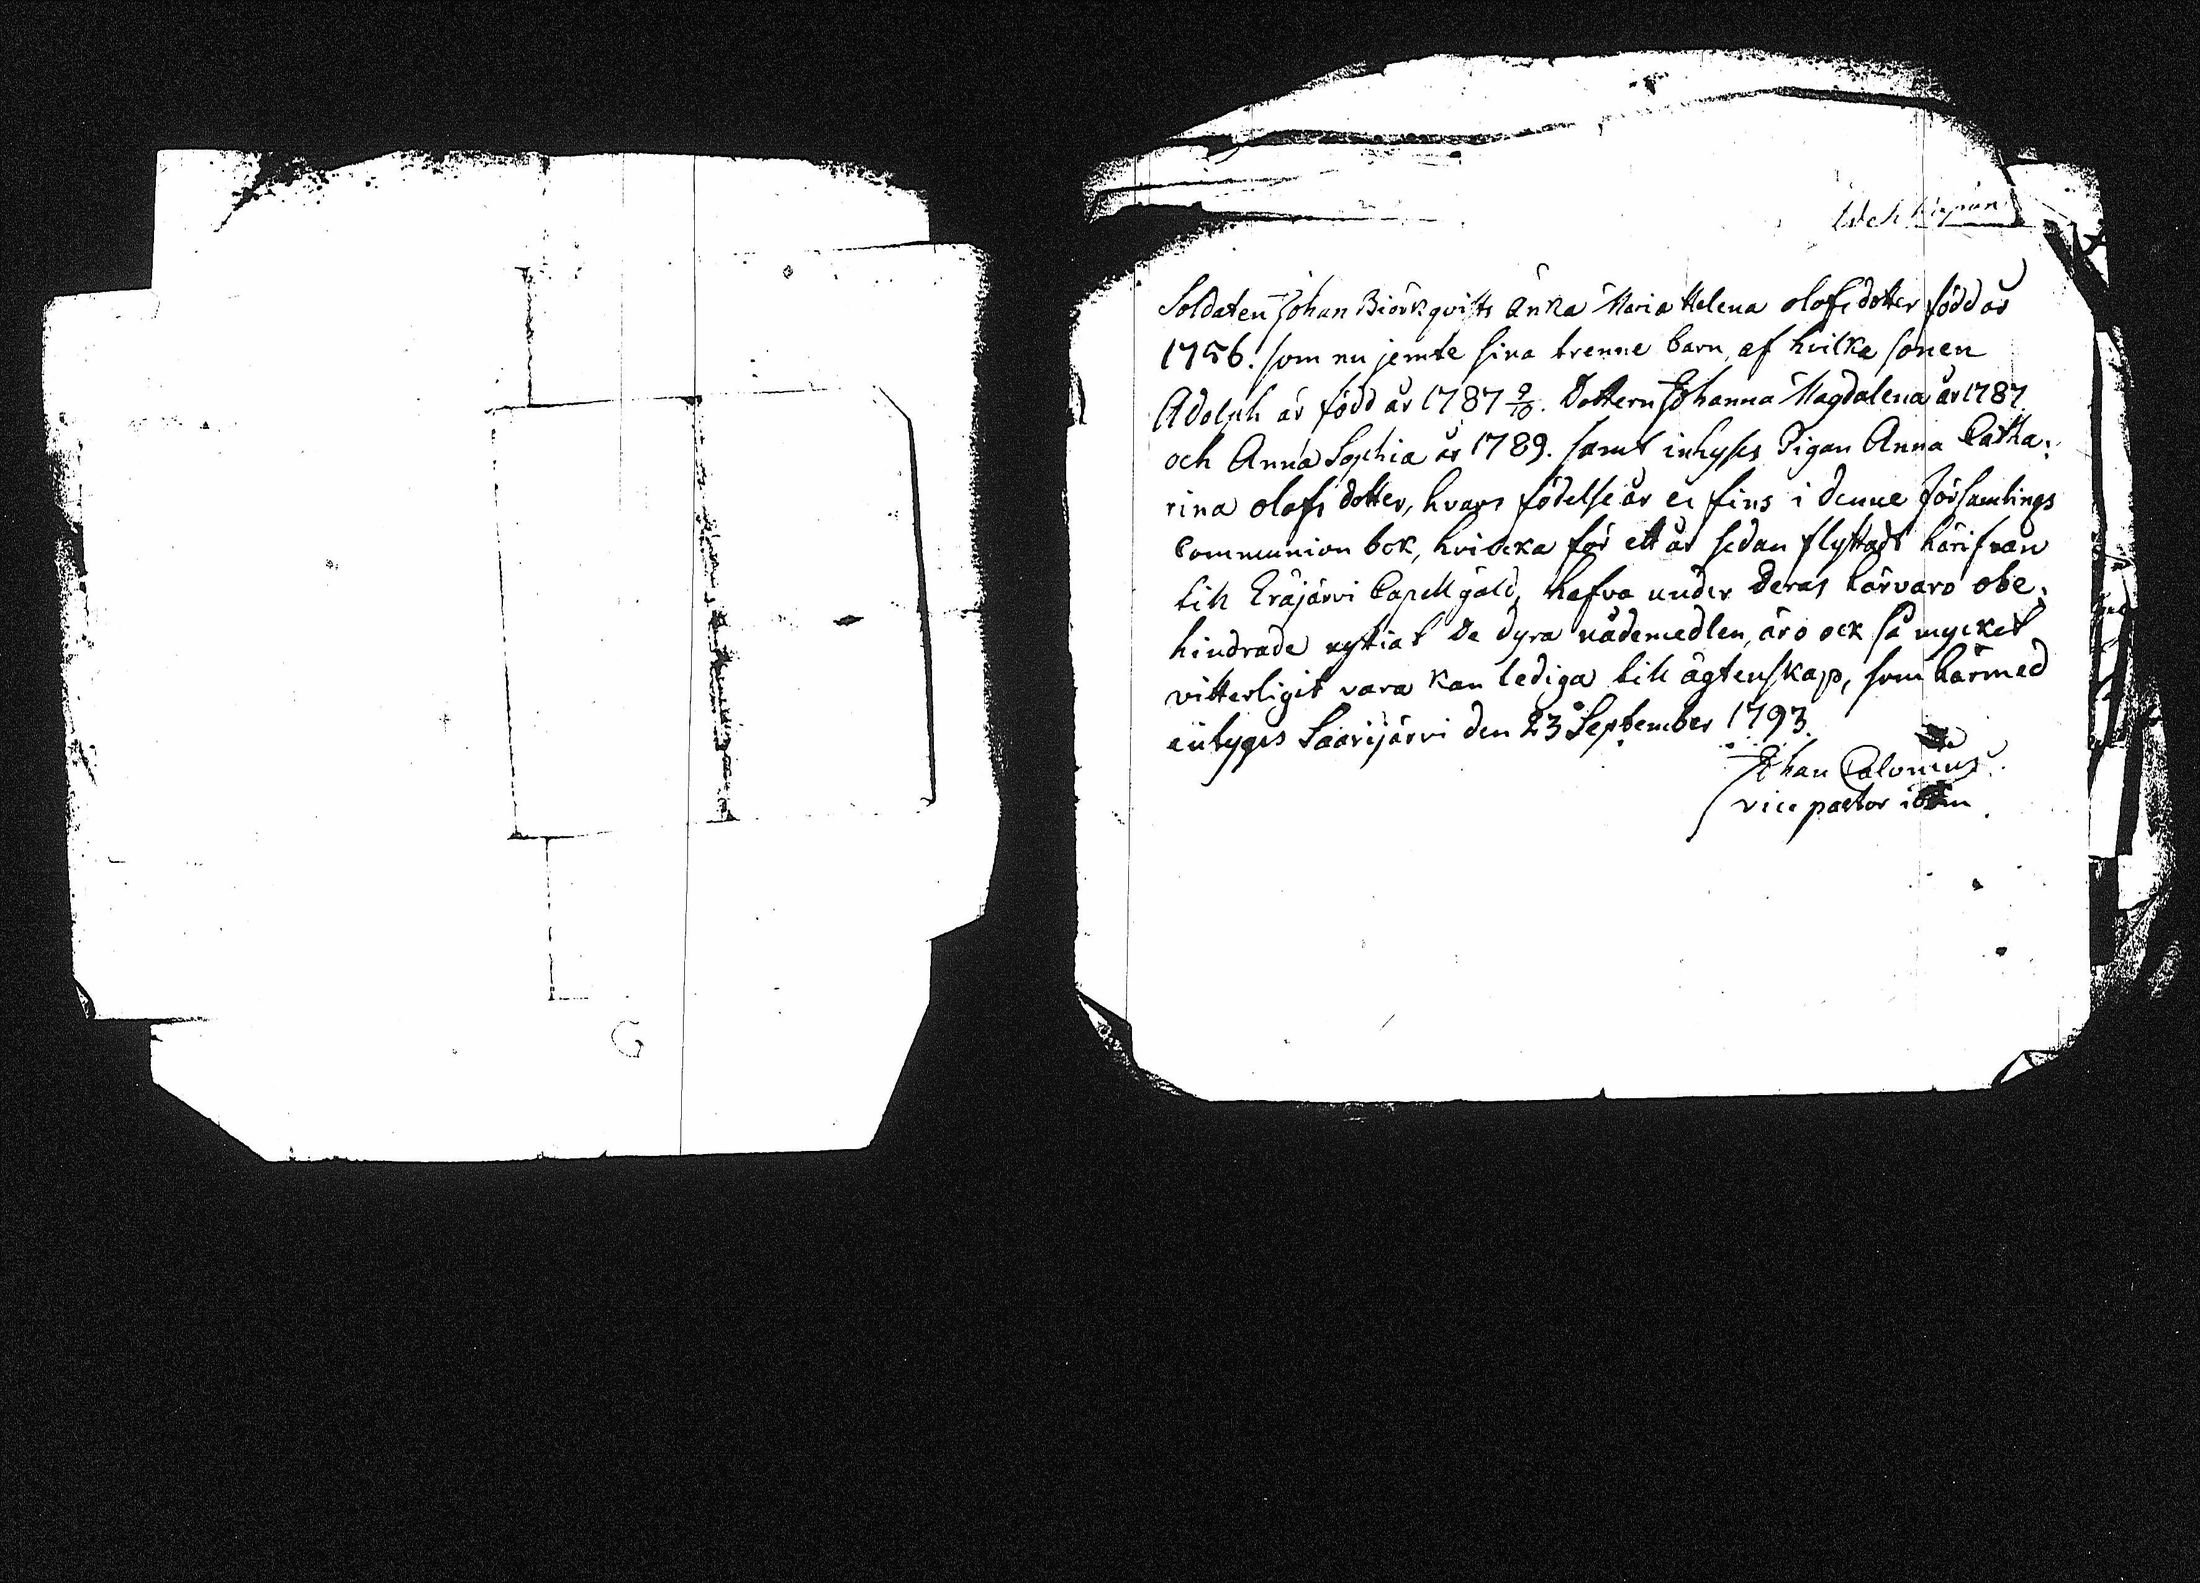 Soldaten Johan Biörkqvists änka Maria Helena olofsdotter född år
1756. som nu jemte sina trenne barn, af hvilka sonen
Adolph är född år 1787 9/10. Dottern Johanna Magdalena år 1787
och Anna Sophia år 1789. samt inhyses Pigan Anna Catha:
rina olofs dotter, hvars födelse år ei fins i denne församlings
Communion bok, hvilcka för ett år sedan flyttadt härifrån
till Eräjärvi Capell gäld, hafva under deras härvaro obe:
hindrade nyttiat de dyra nådemedlen, äro ock så mycket
vitterligit vara kan lediga till ägtenskap, som härmed
intygas Saarijärvi den 23 September 1793.
Johan Calonius
vice pastor ibm
G